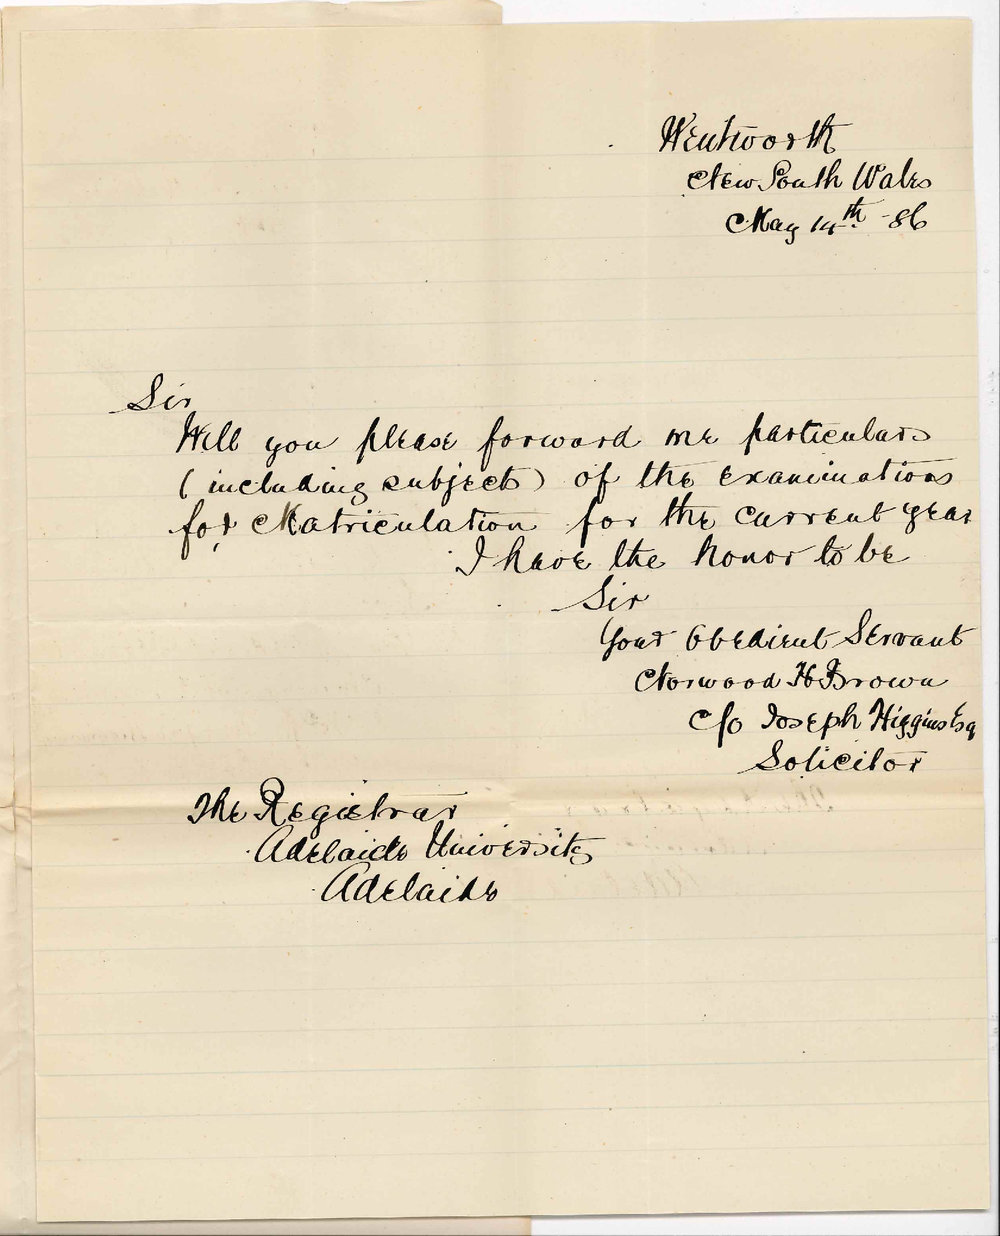 Wentworth
New South Wales
May 14th -86
Sir
Will you please forward me particulars
(including subjects) of the examinations
for Matriculation for the current year
I have the honor to be
Sir
Your Obedient Servant
Norwood H Brown
c/o Joseph Higgins Esq
Solicitor
The Registrar
Adelaide University
Adelaide